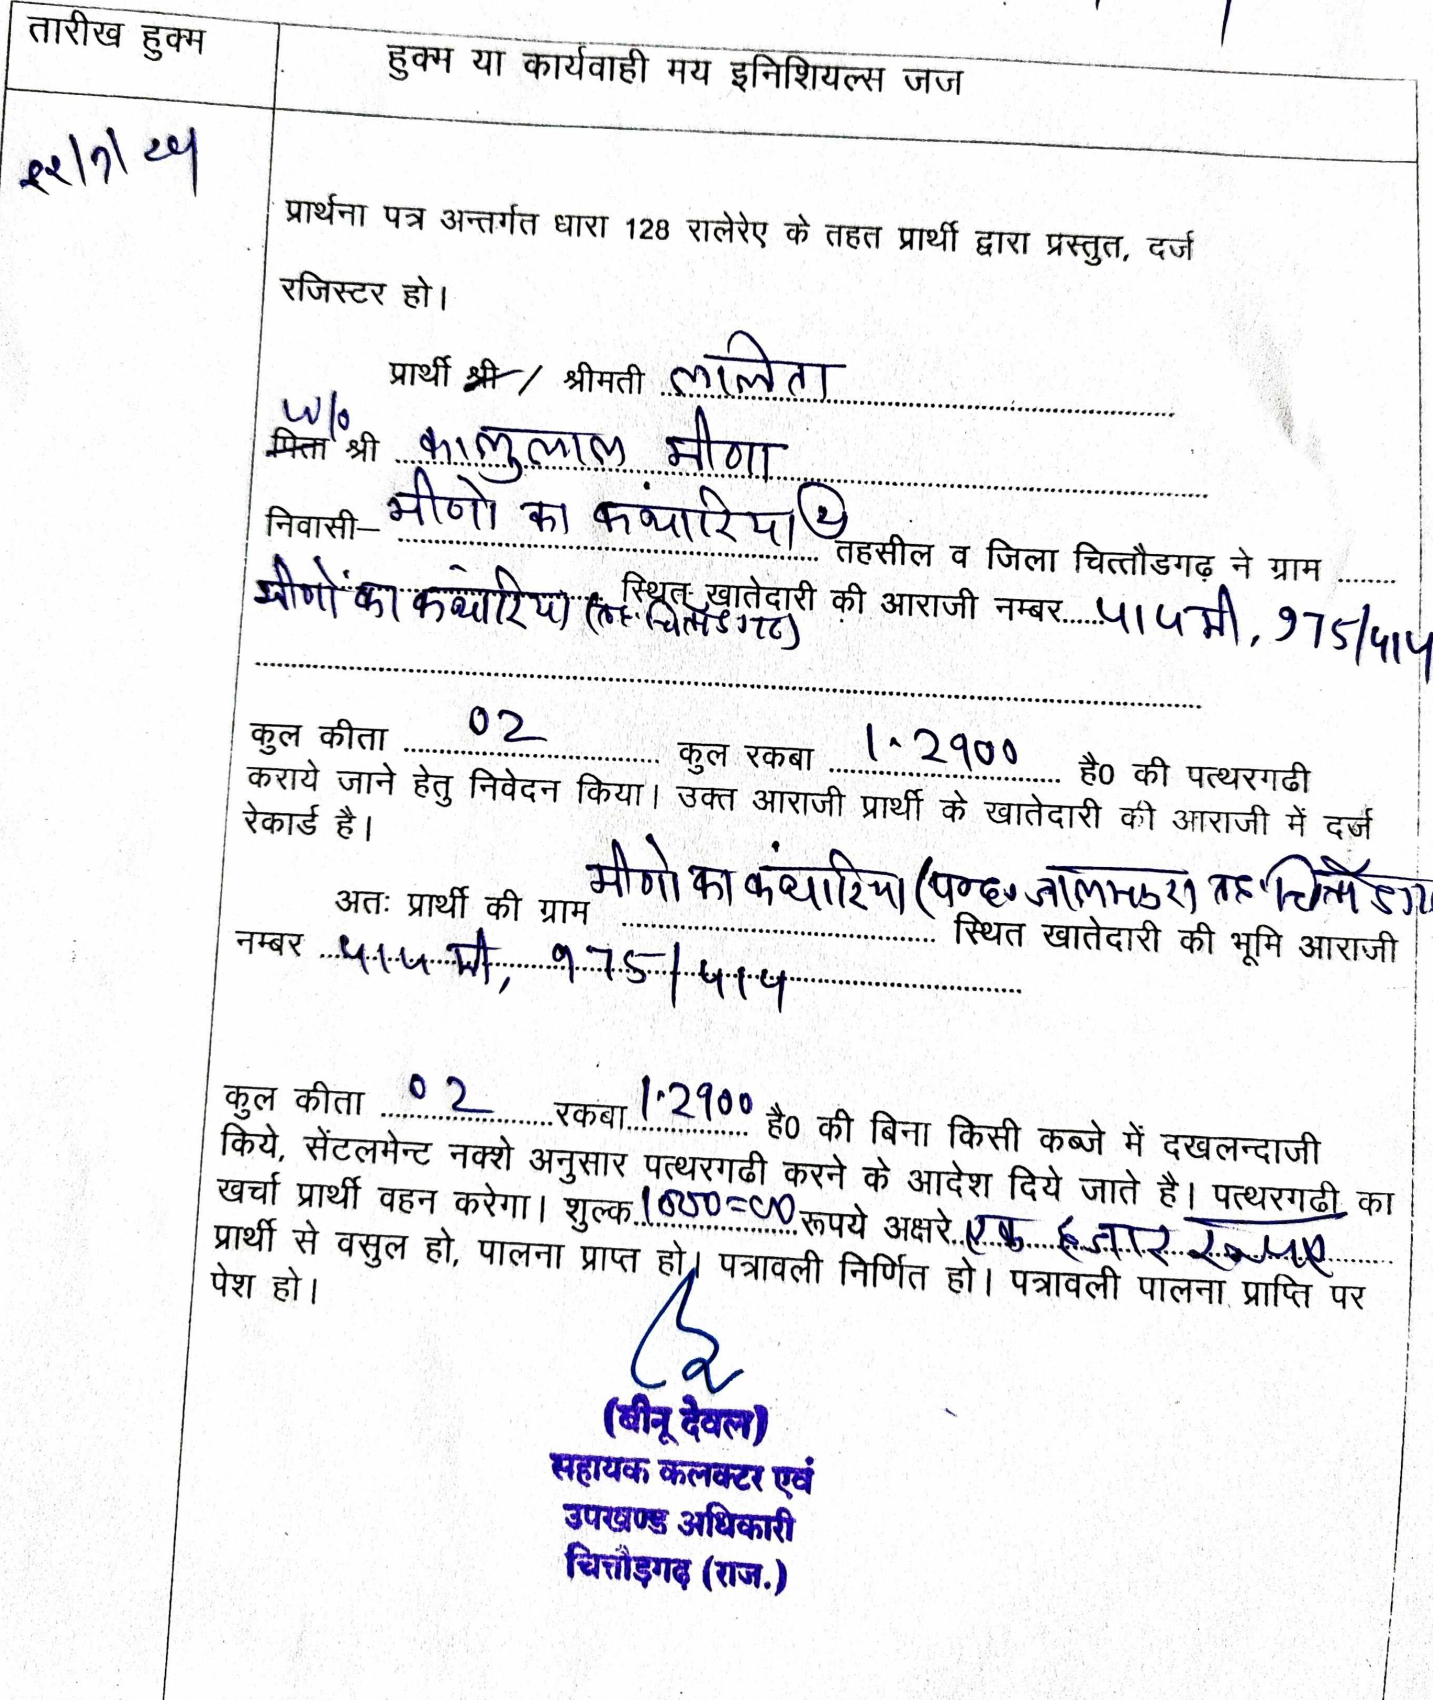 तारीख हुक्म
हुक्म या कार्यवाही मय इनिशियल्स जज
प्रार्थना पत्र अन्तर्गत धारा 128 रालेरेए के तहत प्रार्थी द्वारा प्रस्तुत, दर्ज
रजिस्टर हो।
प्रार्थी श्री / श्रीमती ललिता
W/o
पिता श्री कालुलाल मीणा
निवासी– मीणो का कंथारिया तहसील व जिला चित्तौडगढ़ ने ग्राम
मीणों का कंथारिया (तह. चित्तौडगढ) स्थित खातेदारी की आराजी नम्बर 414 मी, 975/414
कुल कीता 02 कुल रकबा 1.2900 है0 की पत्थरगढी
कराये जाने हेतु निवेदन किया। उक्त आराजी प्रार्थी के खातेदारी की आराजी में दर्ज
रेकार्ड है।
अतः प्रार्थी की ग्राम मीणो का कंथारिया स्थित खातेदारी की भूमि आराजी
नम्बर 414 मी, 975/414
कुल कीता 02 रकबा 1.2900 है0 की बिना किसी कब्जे में दखलन्दाजी
किये, सेंटलमेन्ट नक्शे अनुसार पत्थरगढी करने के आदेश दिये जाते है। पत्थरगढी का
खर्चा प्रार्थी वहन करेगा। शुल्क 1000=00 रूपये अक्षरे एक हजार रूपए
प्रार्थी से वसुल हो, पालना प्राप्त हो। पत्रावली निर्णित हो। पत्रावली पालना प्राप्ति पर
पेश हो।
(बीनू देवल)
सहायक कलक्टर एवं
उपखण्ड अधिकारी
चित्तौड़गढ़ (राज.)